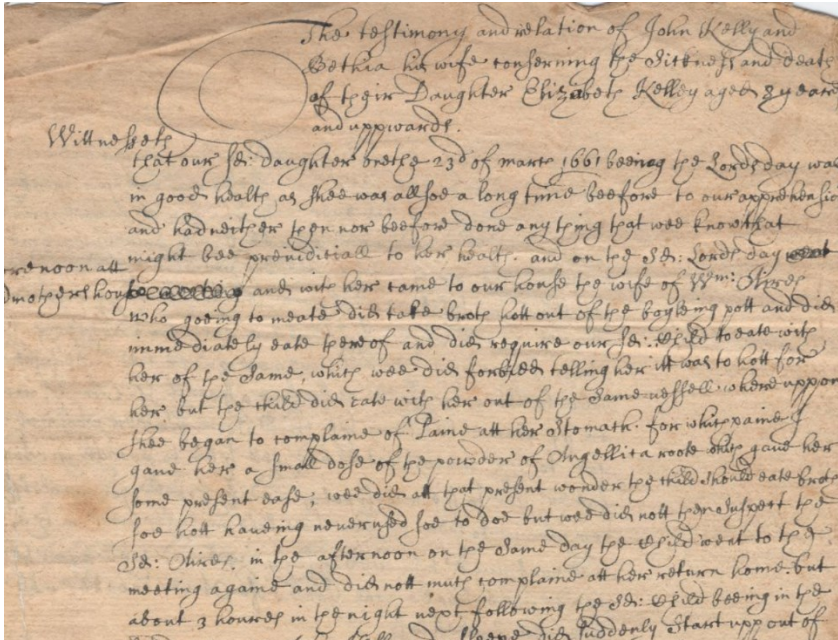 The testimony and relation of John Kelly and
Bethia his wife conserning the Sicknes and death
of their Daughter Elizabeth Kelley aged 8 yeares
and uppwards.
Wittnesseth
that our sd: daughter on the 23d of march 1661 beeing the Lords day was
in good health as shee was allsoe a long time beefore to our apprehensio
and had neither then nor beefore done any thing that wee know that
might bee preiudiciall to her health. and on the sd: Lords day went
renoon att
dmothers house and with her came to our house the wife of Wm: Aires
who goeing to meate did take broth hott out of the boyleing pott and did
immediately eate thereof and did require our sd: Child to eate with
her of the same, which wee did forbeed telling her itt was to hott for
her but the child did eate with her out of the same vessell. whereuppon
shee began to complaine of Paine att her Stomach. for which paine I
gave her a small dose of the powder of Angellica roote which gave her
some present ease; wee did att that present wonder the child should eate broth
soe hott haveing never used soe to doe but wee did nott then suspect the
sd: Aires. in the afternoon on the same day the Child went to the
meeting againe and did nott much complaine att her return home. but
about 3 houres in the night next following the sd: Child beeing in the
suddenly Start upp out of